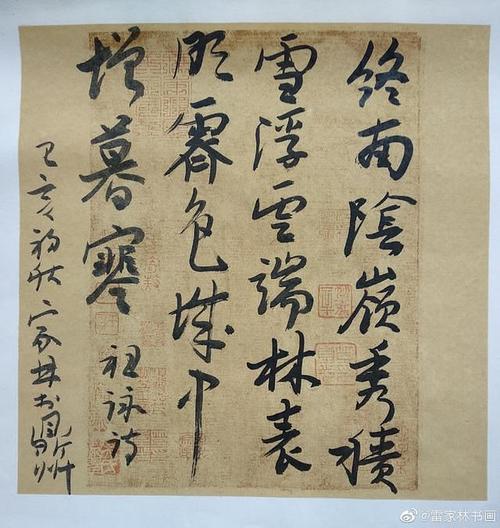 終南陰嶺秀積
雪浮雲端林表
明霽色城中
增暮寒 祖詠詩
己亥初秋家林书
@雷家林书画